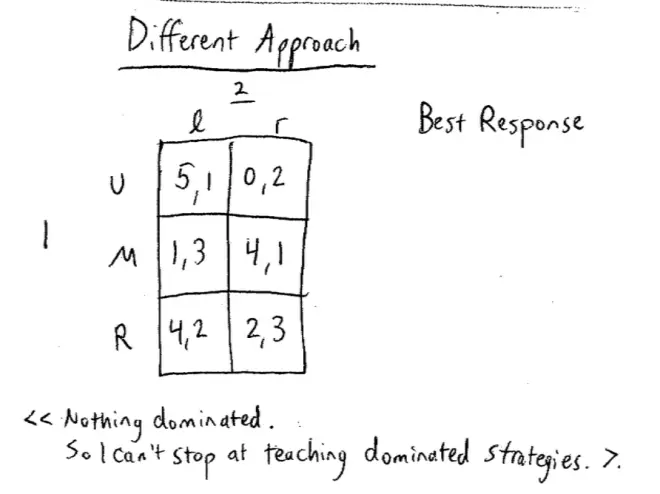 Different Approach
2
l r
Best Response
U 5,1 0,2
1
M 1,3 4,1
R 4,2 2,3
<< Nothing dominated.
So I can't stop at teaching dominated strategies. >.